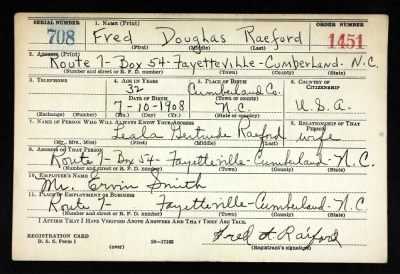 SERIAL NUMBER 1. NAME (Print) ORDER NUMBER
708 Fred Doughas Raeford 1451
(First) (Middle) (Last)
2. ADDRESS (Print)
Route 7- Box 54- Fayetteville- Cumberland- N.C.
(Number and street or R. F. D. number) (Town) (County) (State)
3. TELEPHONE 4. AGE IN YEARS 5. PLACE OF BIRTH 6. COUNTRY OF CITIZENSHIP
32 Cumberland Co.
DATE OF BIRTH (Town or county)
7-10-1908 N.C. U.S.A.
(Exchange) (Number) (Mo.) (Day) (Yr.) (State or country)
7. NAME OF PERSON WHO WILL ALWAYS KNOW YOUR ADDRESS 8. RELATIONSHIP OF THAT PERSON
Gertrude Raeford wife
(Mr., Mrs., Miss) (First) (Middle) (Last)
9. ADDRESS OF THAT PERSON
Route 7- Box 54- Fayetteville- Cumberland- N.C.
(Number and street or R. F. D. number) (Town) (County) (State)
10. EMPLOYER'S NAME
Mr. Ervin Smith
11. PLACE OF EMPLOYMENT OR BUSINESS
Route 7- Fayetteville- Cumberland- N.C.
(Number and street or R. F. D. number) (Town) (County) (State)
I AFFIRM THAT I HAVE VERIFIED ABOVE ANSWERS AND THAT THEY ARE TRUE.
REGISTRATION CARD
D. S. S. Form 1 (over) 16—17105 Fred Raiford
(Registrant's signature)